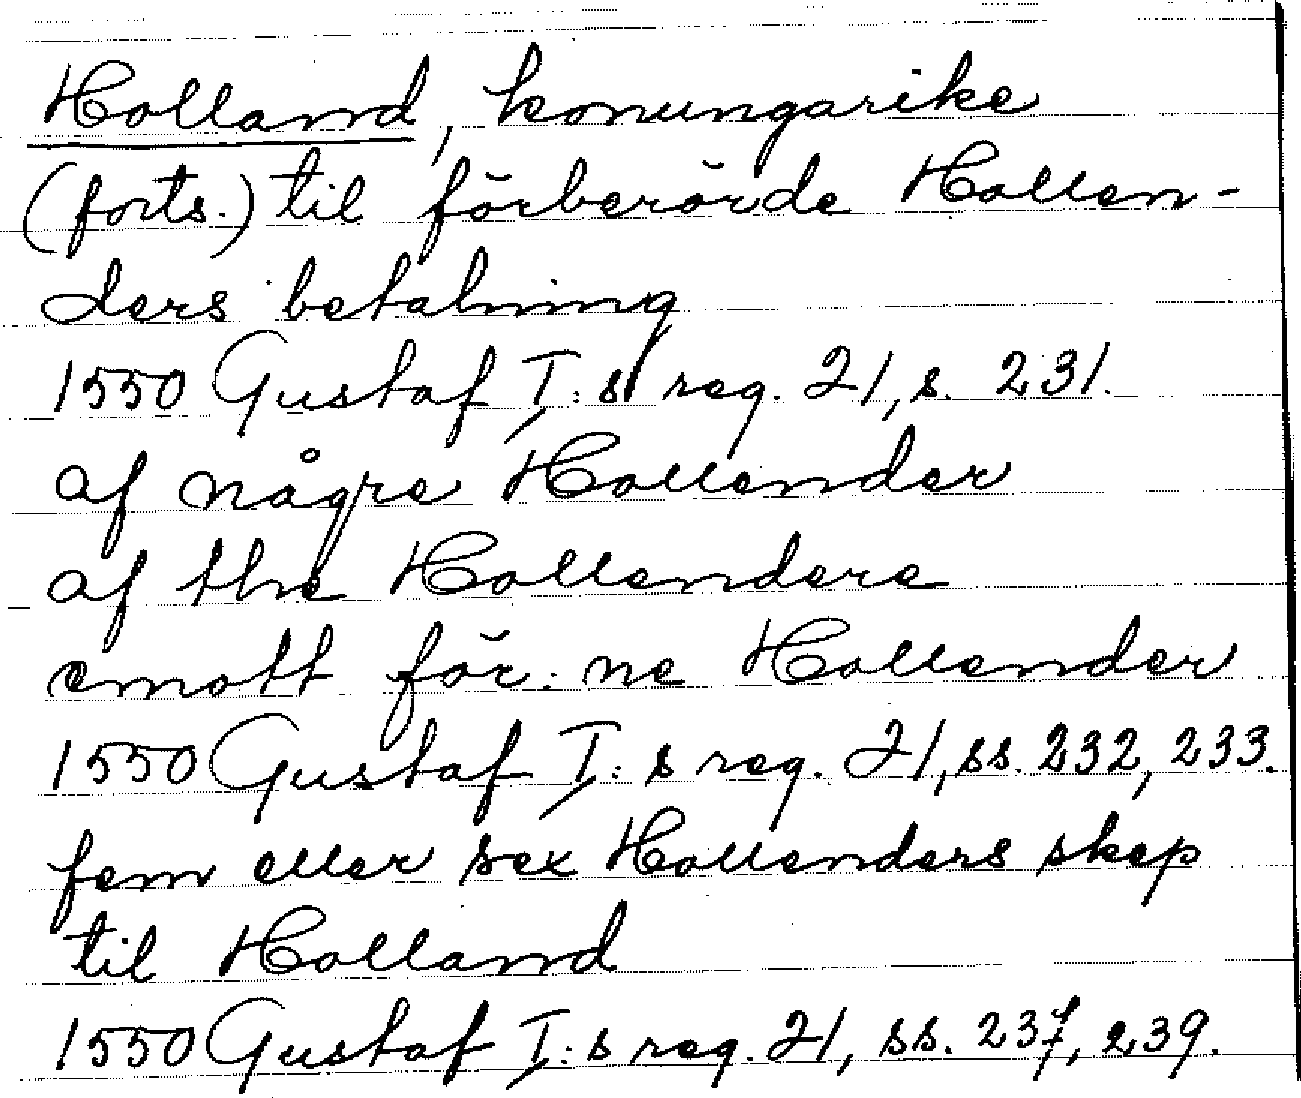 Holland, konungarike
(forts.) til förberörde Hollen-
ders betalning
1550 Gustaf I:s reg. 21, s. 231.
af någre Hollender
af the Hollendere
emott för:ne Hollender
1550 Gustaf I:s reg. 21, ss. 232, 233.
fem eller sex Hollenders skep
til Holland
1550 Gustaf I:s reg. 21, ss. 237, 239.